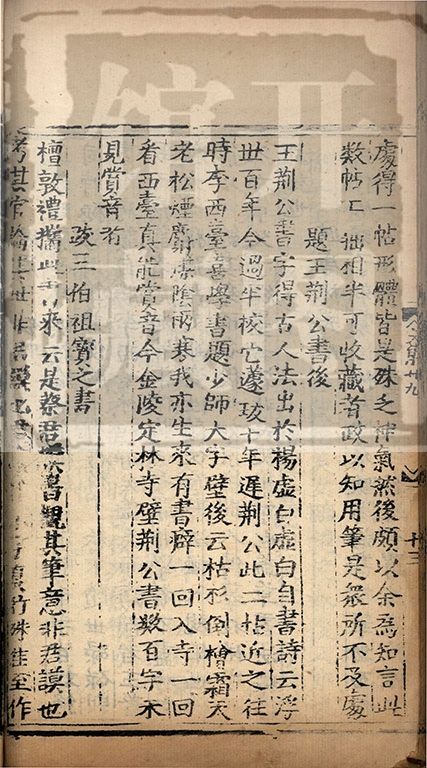 處得一帖形體皆是殊乏神氣然後頗以余為知言此
數帖工拙相半可收藏者政以知用筆是衆所不及處
題王荊公書後
王荊公書字得古人法出於楊虛白虛白自書詩云浮
世百年今過半校它蘧瑗十年遲荊公此二帖近之往
時李西臺喜學書題少師大字壁後云枯杉倒檜霜天
老松煙麝煤陰雨寒我亦生來有書癖一回入寺一回
看西臺真能賞音今金陵定林寺壁荊公書數百字未
見賞音者
跋三伯祖寶之書
檀敦禮攜此書來云是蔡君謨書觀其筆意非君謨也
考其官
十三